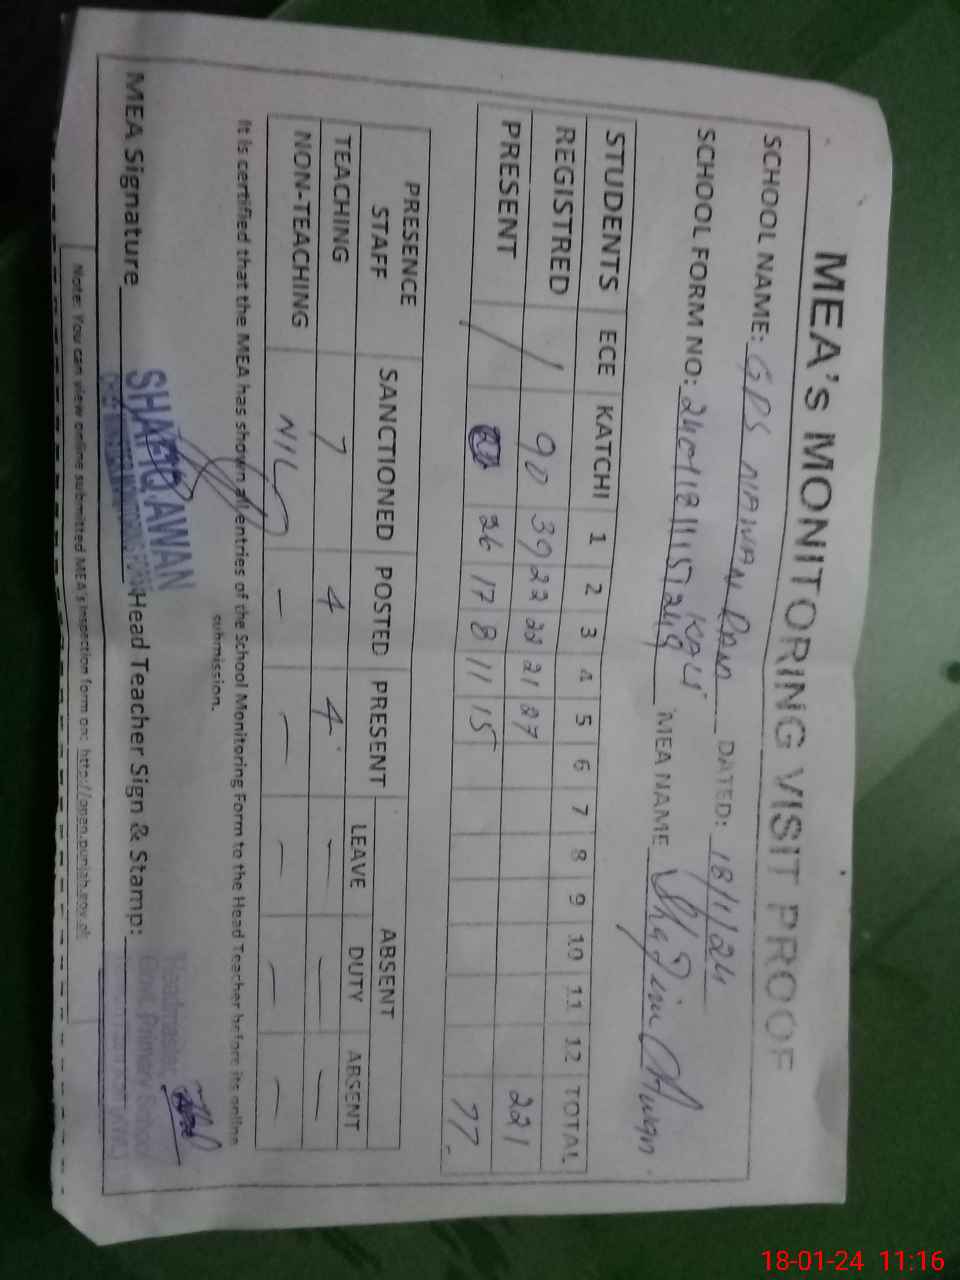 MEA'S MONITORING VISIT PROOF
SCHOOL NAME: GPS NAWAN DATED: 18/1/24
SCHOOL FORM NO: MEA NAME
STUDENTS ECE KATCHI 1 2 3 4 5 6 7 8 9 10 11 12 TOTAL
REGISTRED / 90 39 22 22 21 27 221
PRESENT / 26 17 8 11 15 77
PRESENCE STAFF SANCTIONED POSTED PRESENT ABSENT
LEAVE DUTY ABSENT
TEACHING 7 4 4 — — —
NON-TEACHING NIL — — — — —
It is certified that the MEA has shown all entries of the School Monitoring Form to the Head Teacher before its online
submission.
MEA Signature SHAFIQ AWAN Head Teacher Sign & Stamp: Headmaster
Govt. Primary School
Note: You can view online submitted MEA's inspection form on: http://open.punjab.gov.pk
18-01-24 11:16